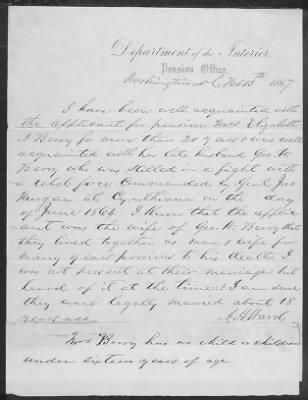 Department of the Interior,
Pension Office,
Washington D C, Feb 13th 1867
I have been well acquainted with
the applicant for pension Mrs Elizabeth
A Berry for more than 20 years & was well
acquainted with her late husband Geo. W.
Berry who was killed in a fight with
a rebel force Commanded by Genl Jno
Morgan at Cynthiana on the day
of June 1864. I know that the applic
ant was the wife of Geo. W. Berry that
they lived together as man & wife for
many years previous to his death. I
was not present at their marriage but
heard of it at the time & I am sure
they were legally married about 18
years ago
A. H. Ward
Mrs Berry has no child or children
under sixteen years of age